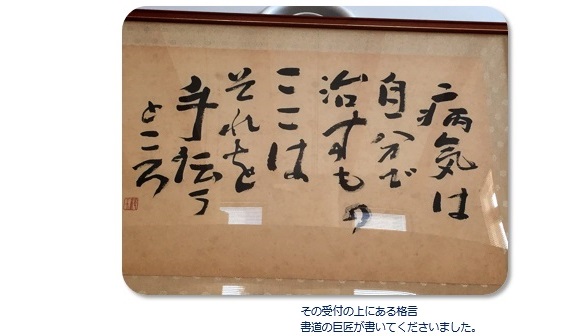 病気は
自分で
治すもの
ここは
それを
手伝う
ところ
その受付の上にある格言
書道の巨匠が書いてくださいました。